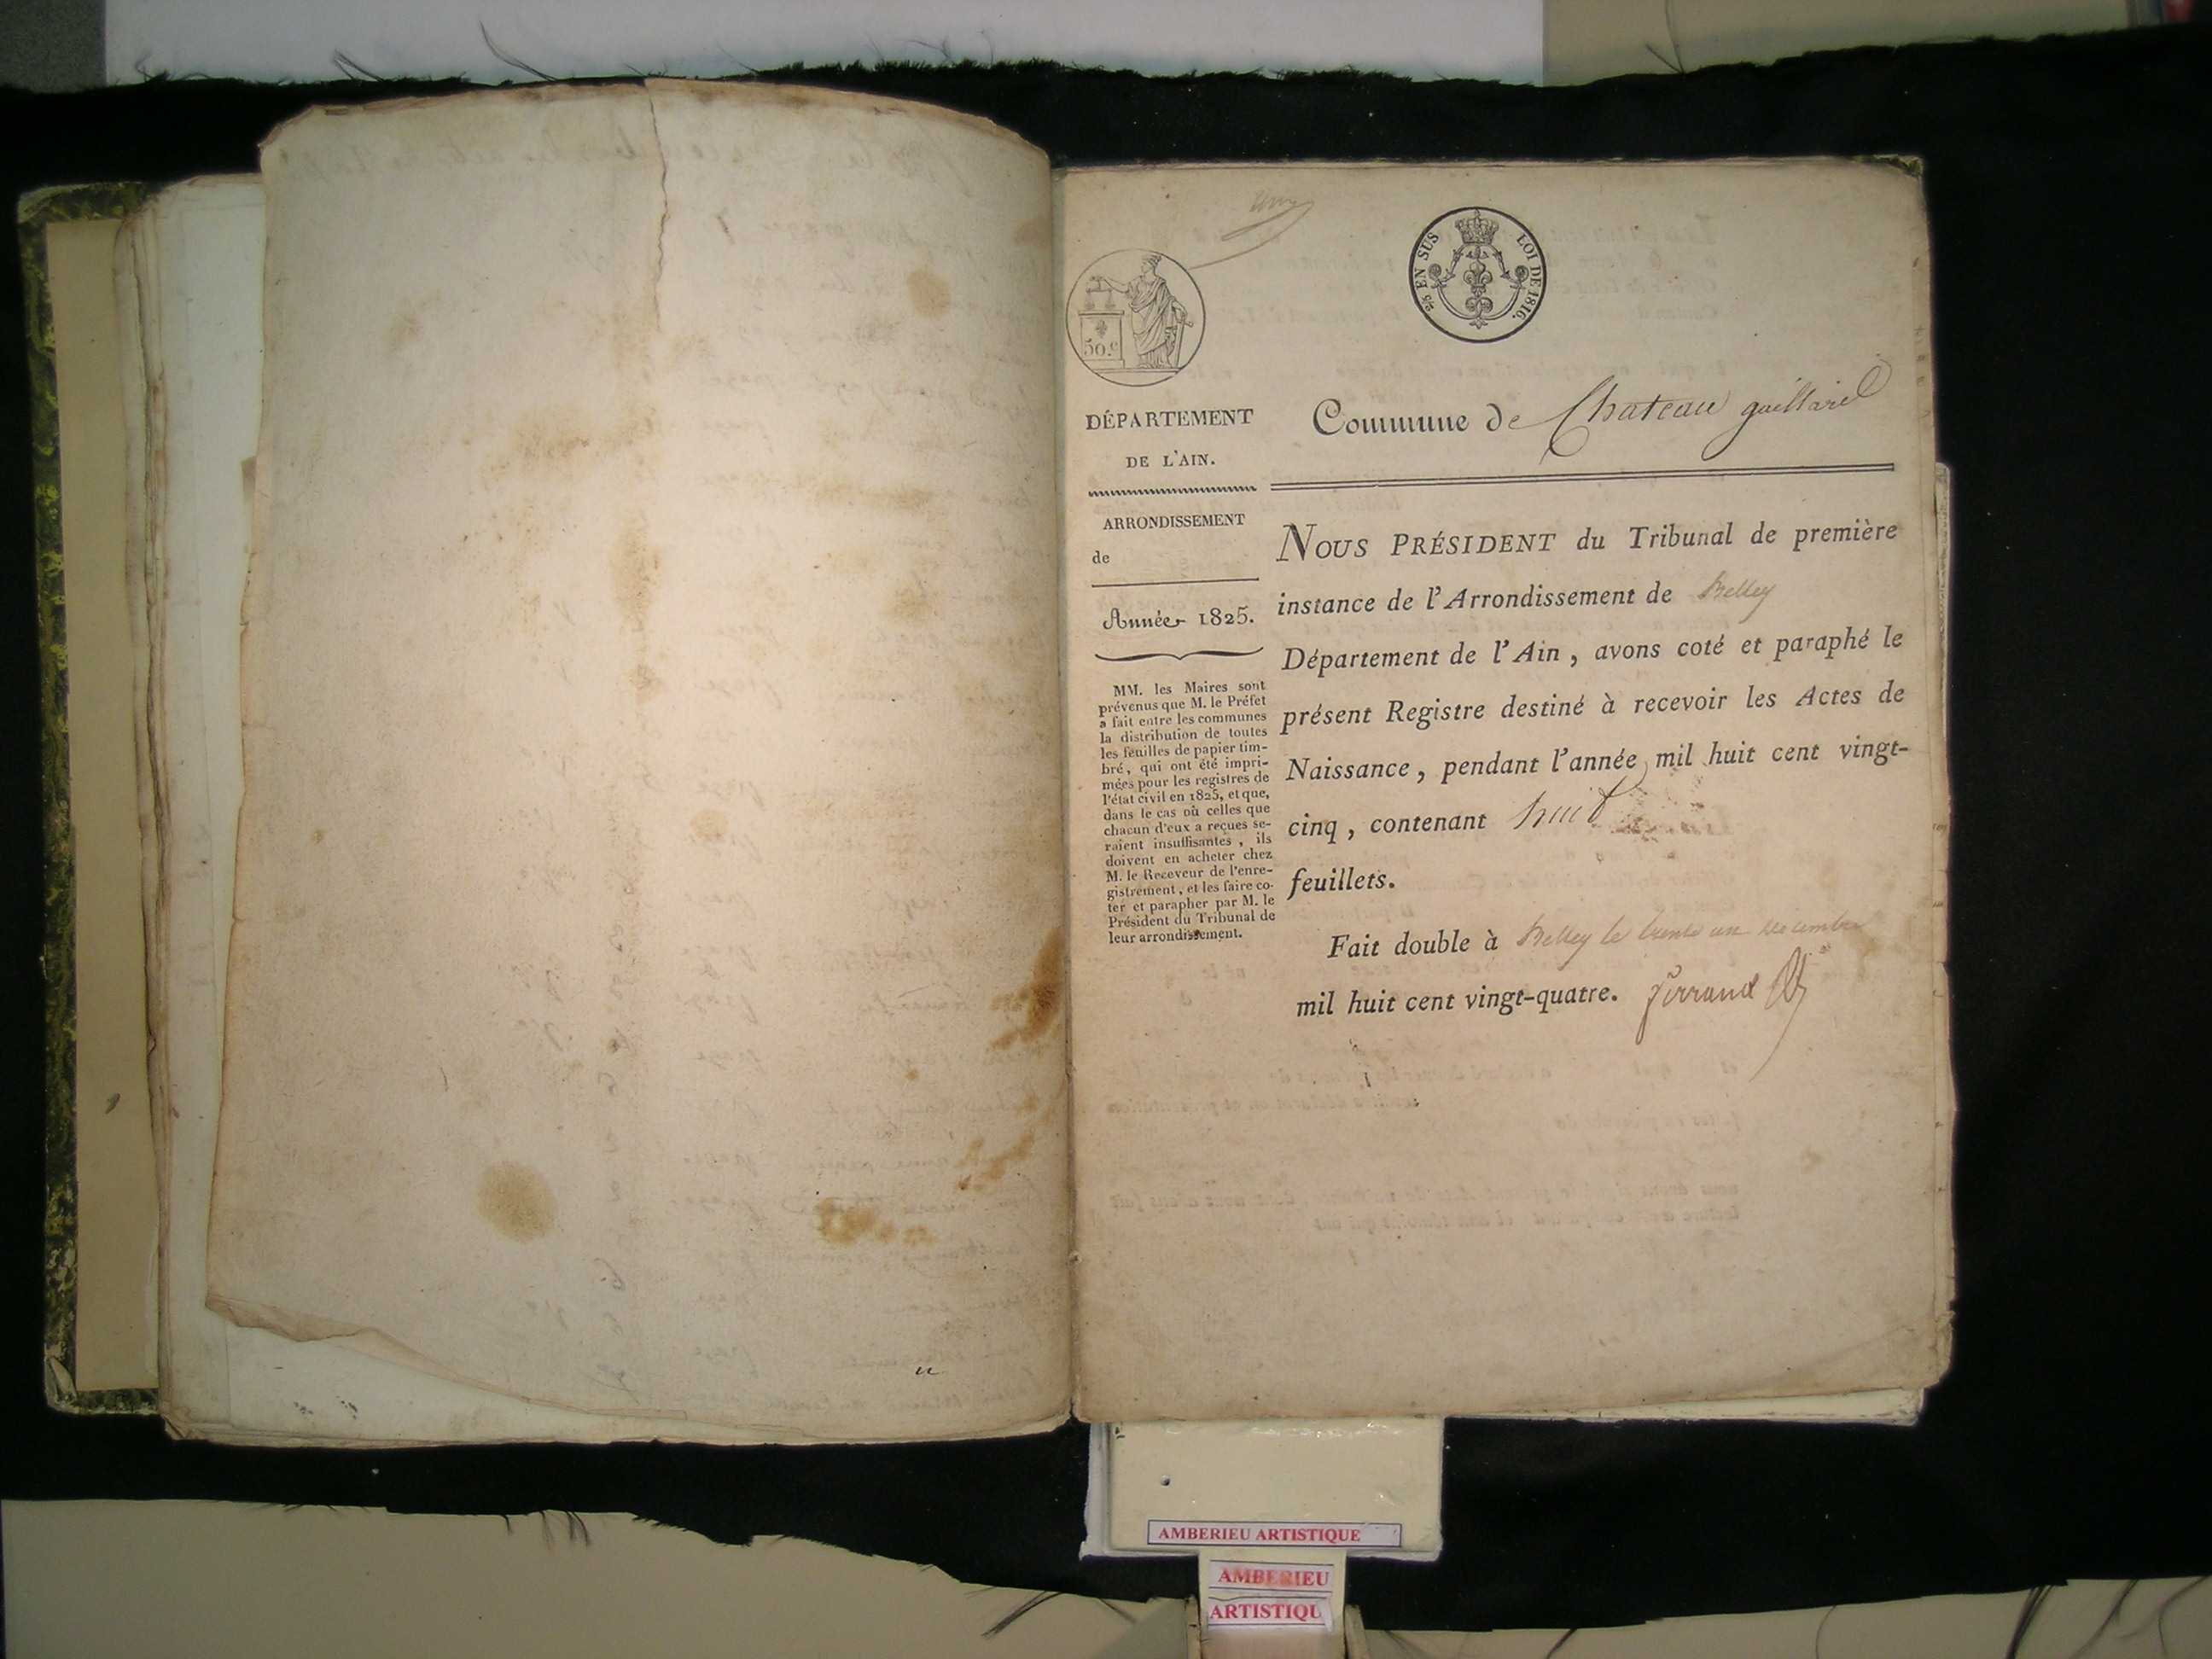 50.c
2/5 EN SUS LOI DE 1816.
DÉPARTEMENT
DE L'AIN.
ARRONDISSEMENT
de
Année 1825.
MM. les Maires sont
prévenus que M. le Préfet
a fait entre les communes
la distribution de toutes
les feuilles de papier tim-
bré, qui ont été impri-
mées pour les registres de
l'état civil en 1825, et que,
dans le cas où celles que
chacun d'eux a reçues se-
raient insuffisantes, ils
doivent en acheter chez
M. le Receveur de l'enre-
gistrement, et les faire co-
ter et parapher par M. le
Président du Tribunal de
leur arrondissement.
Commune de Chateau gaillard
NOUS PRÉSIDENT du Tribunal de première
instance de l'Arrondissement de Belley
Département de l'Ain, avons coté et paraphé le
présent Registre destiné à recevoir les Actes de
Naissance, pendant l'année mil huit cent vingt-
cinq, contenant huit
feuillets.
Fait double à Belley le trente un décembre
mil huit cent vingt-quatre. ferrand
AMBERIEU ARTISTIQUE
AMBERIEU
ARTISTIQU